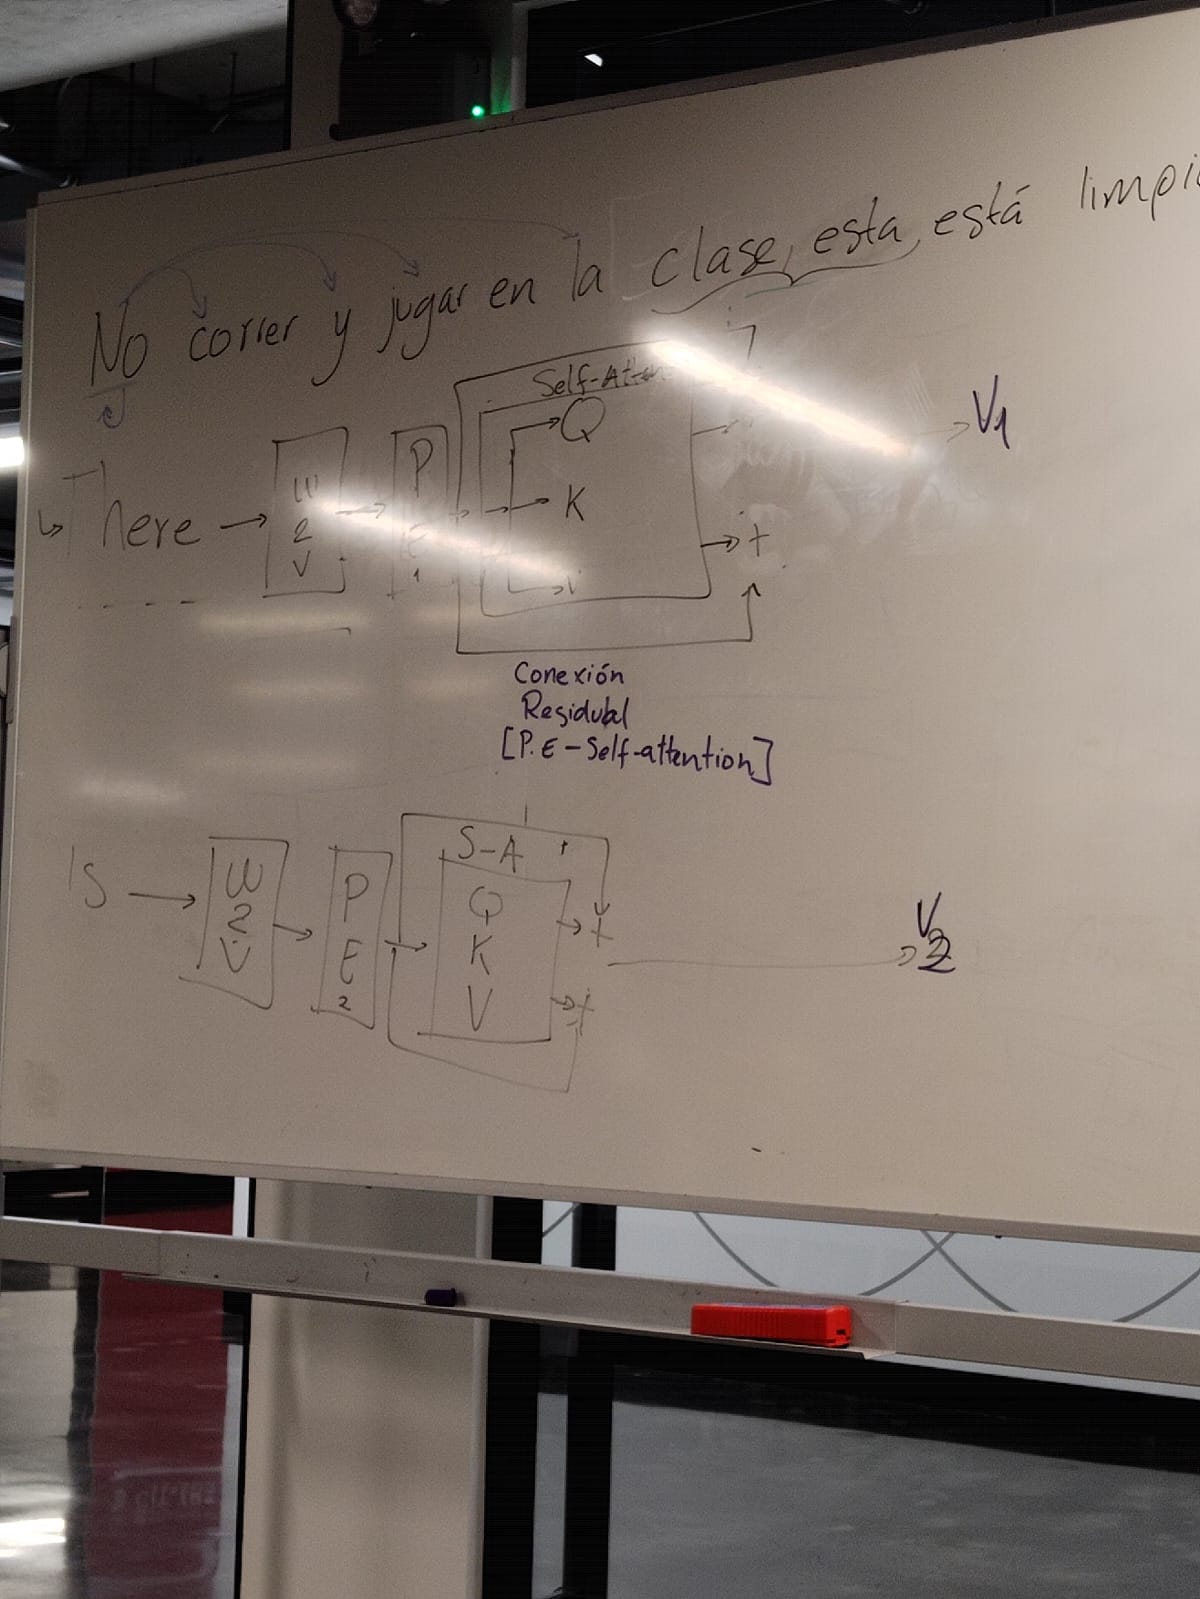 No correr y jugar en la clase, esta, está limpi
There → W2V → PE1 → Self-Atten
Q
K
V
+
V1
Conexión
Residual
[P.E-Self-attention]
Is → W2V → PE2 → S-A
Q
K
V
+
+
V2